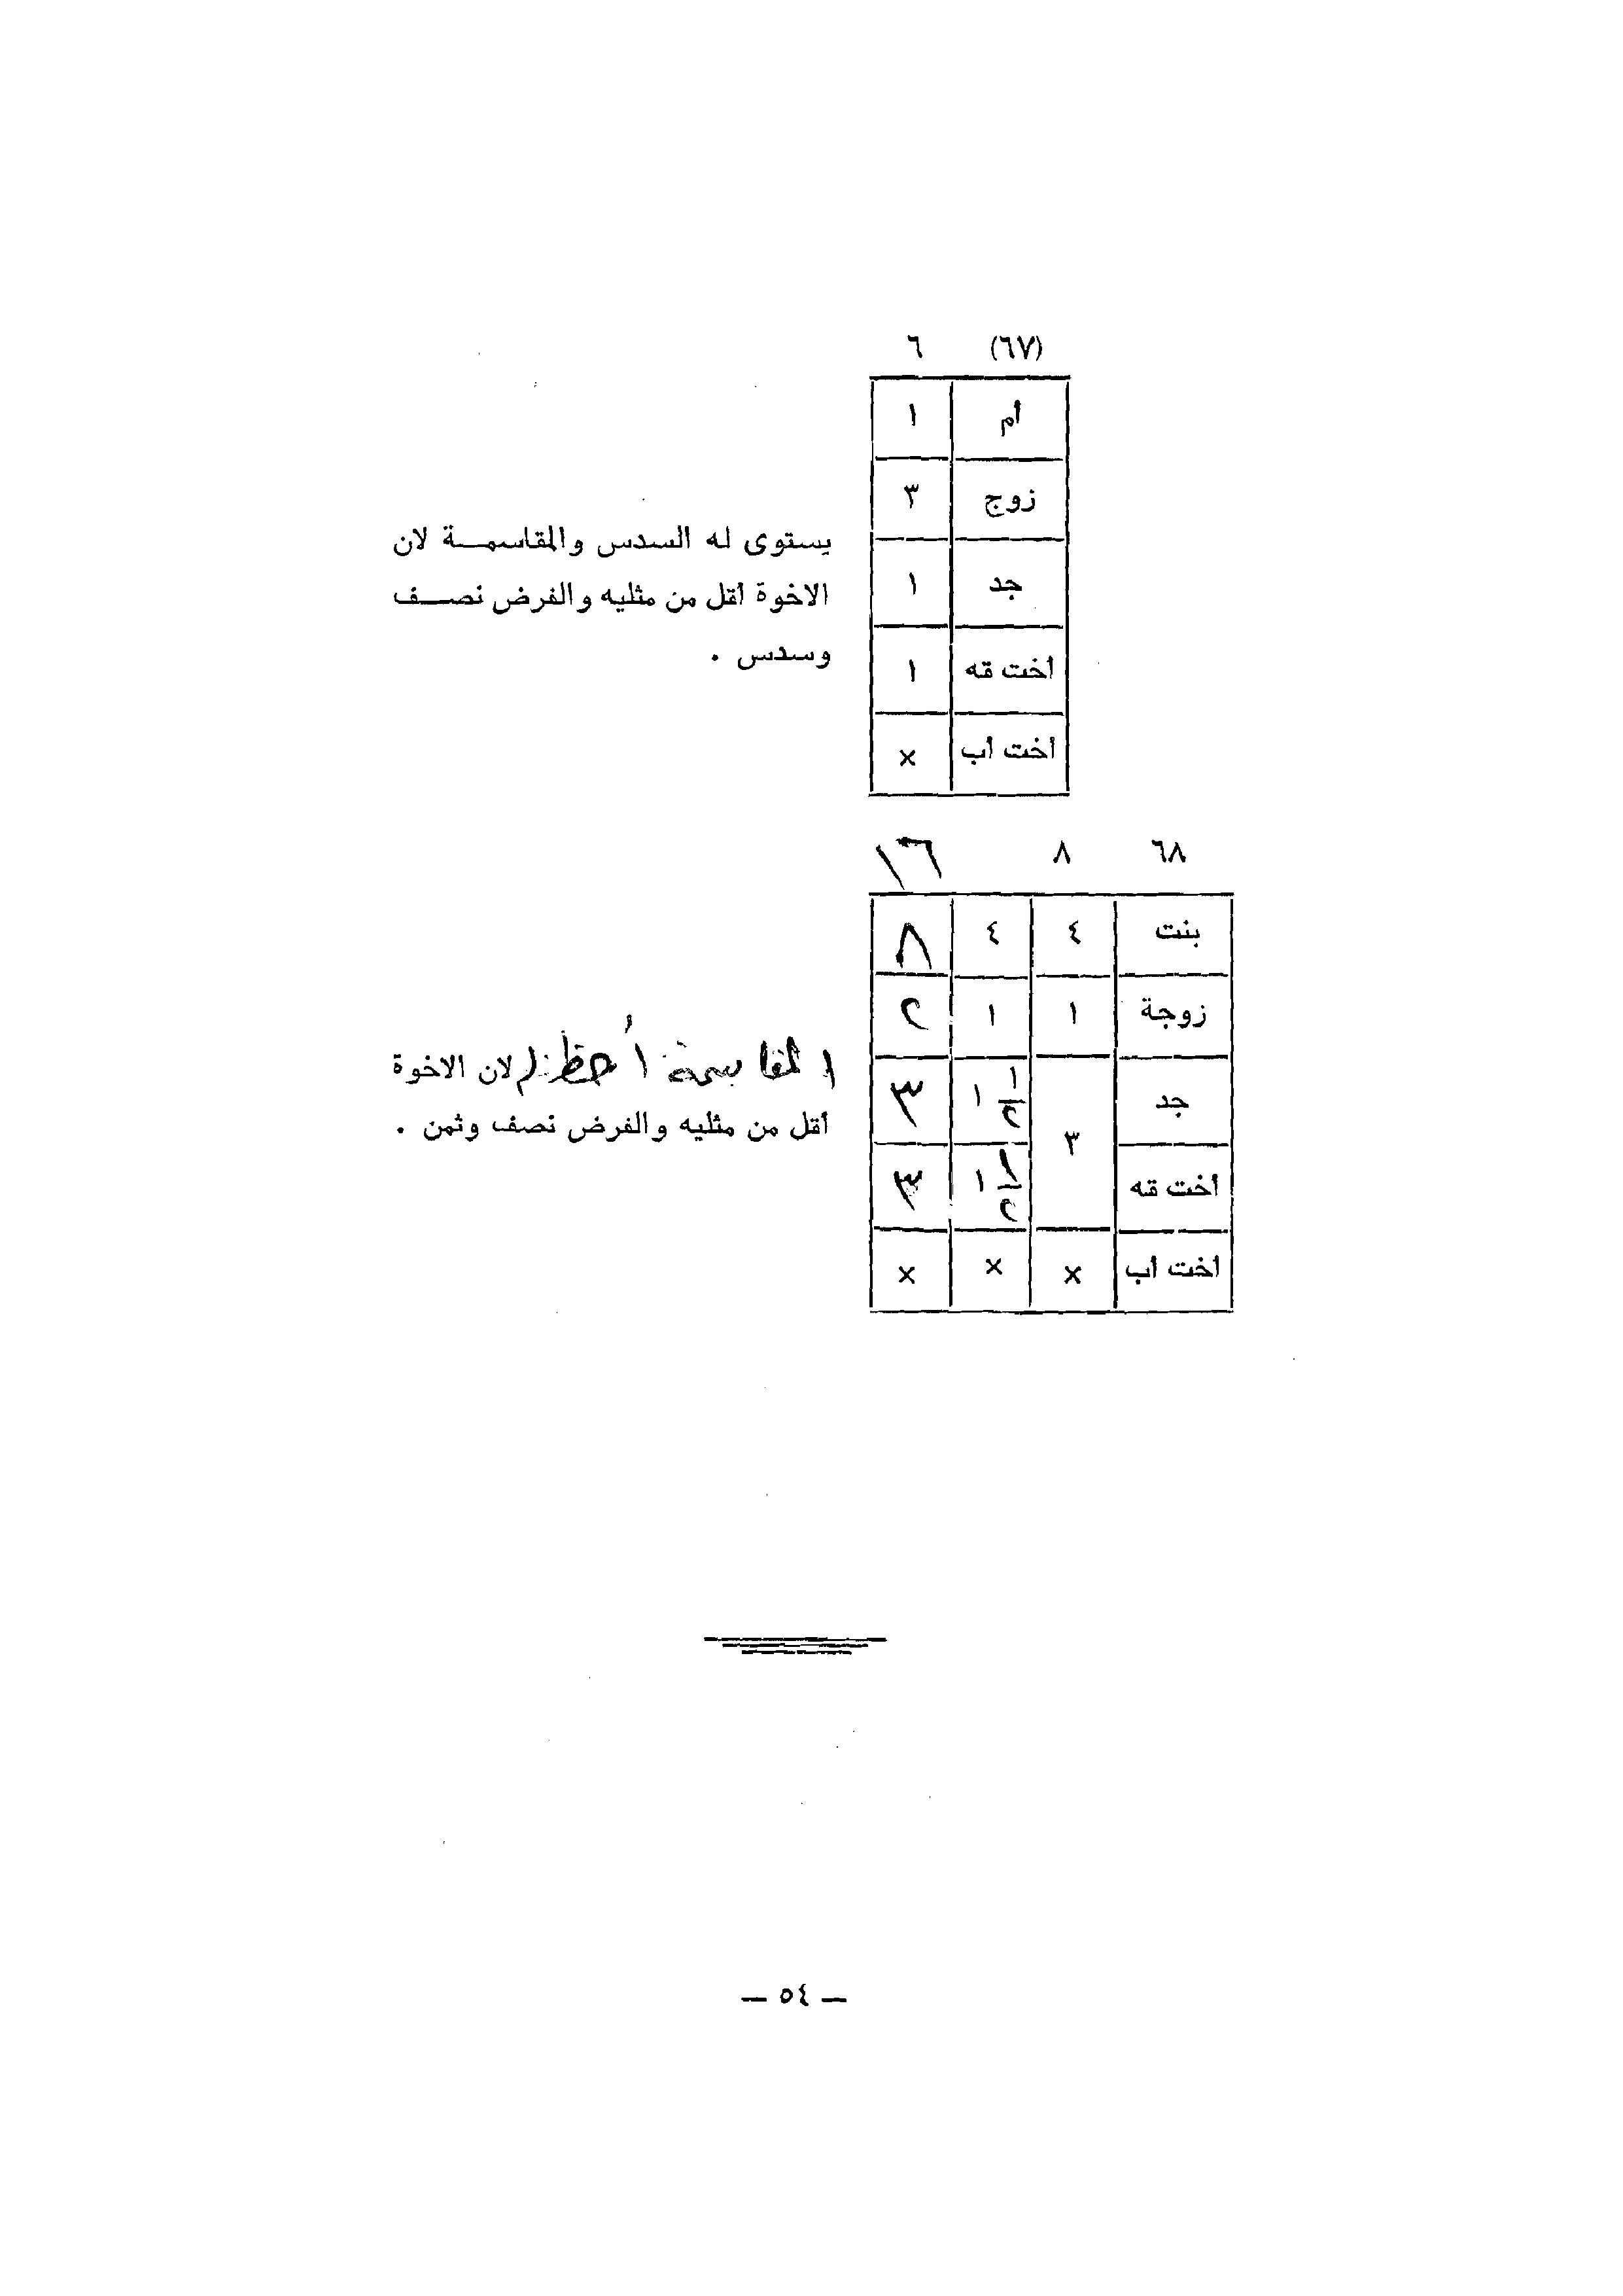 (٦٧) ٦
أم ١
زوج ٣
جد ١
أخت قه ١
أخت أب ×
يستوى له السدس والمقاسمة لان
الاخوة أقل من مثليه والفرض نصف
وسدس .
٦٨ ٨ ١٦
بنت ٤ ٤ ٨
زوجة ١ ١ ٢
جد ٣ ١ ١/٢ ٣
أخت قه ١ ١/٢ ٣
أخت أب × × ×
المقاسمة أحظ لان الاخوة
أقل من مثليه والفرض نصف وثمن .
— ٥٤ —